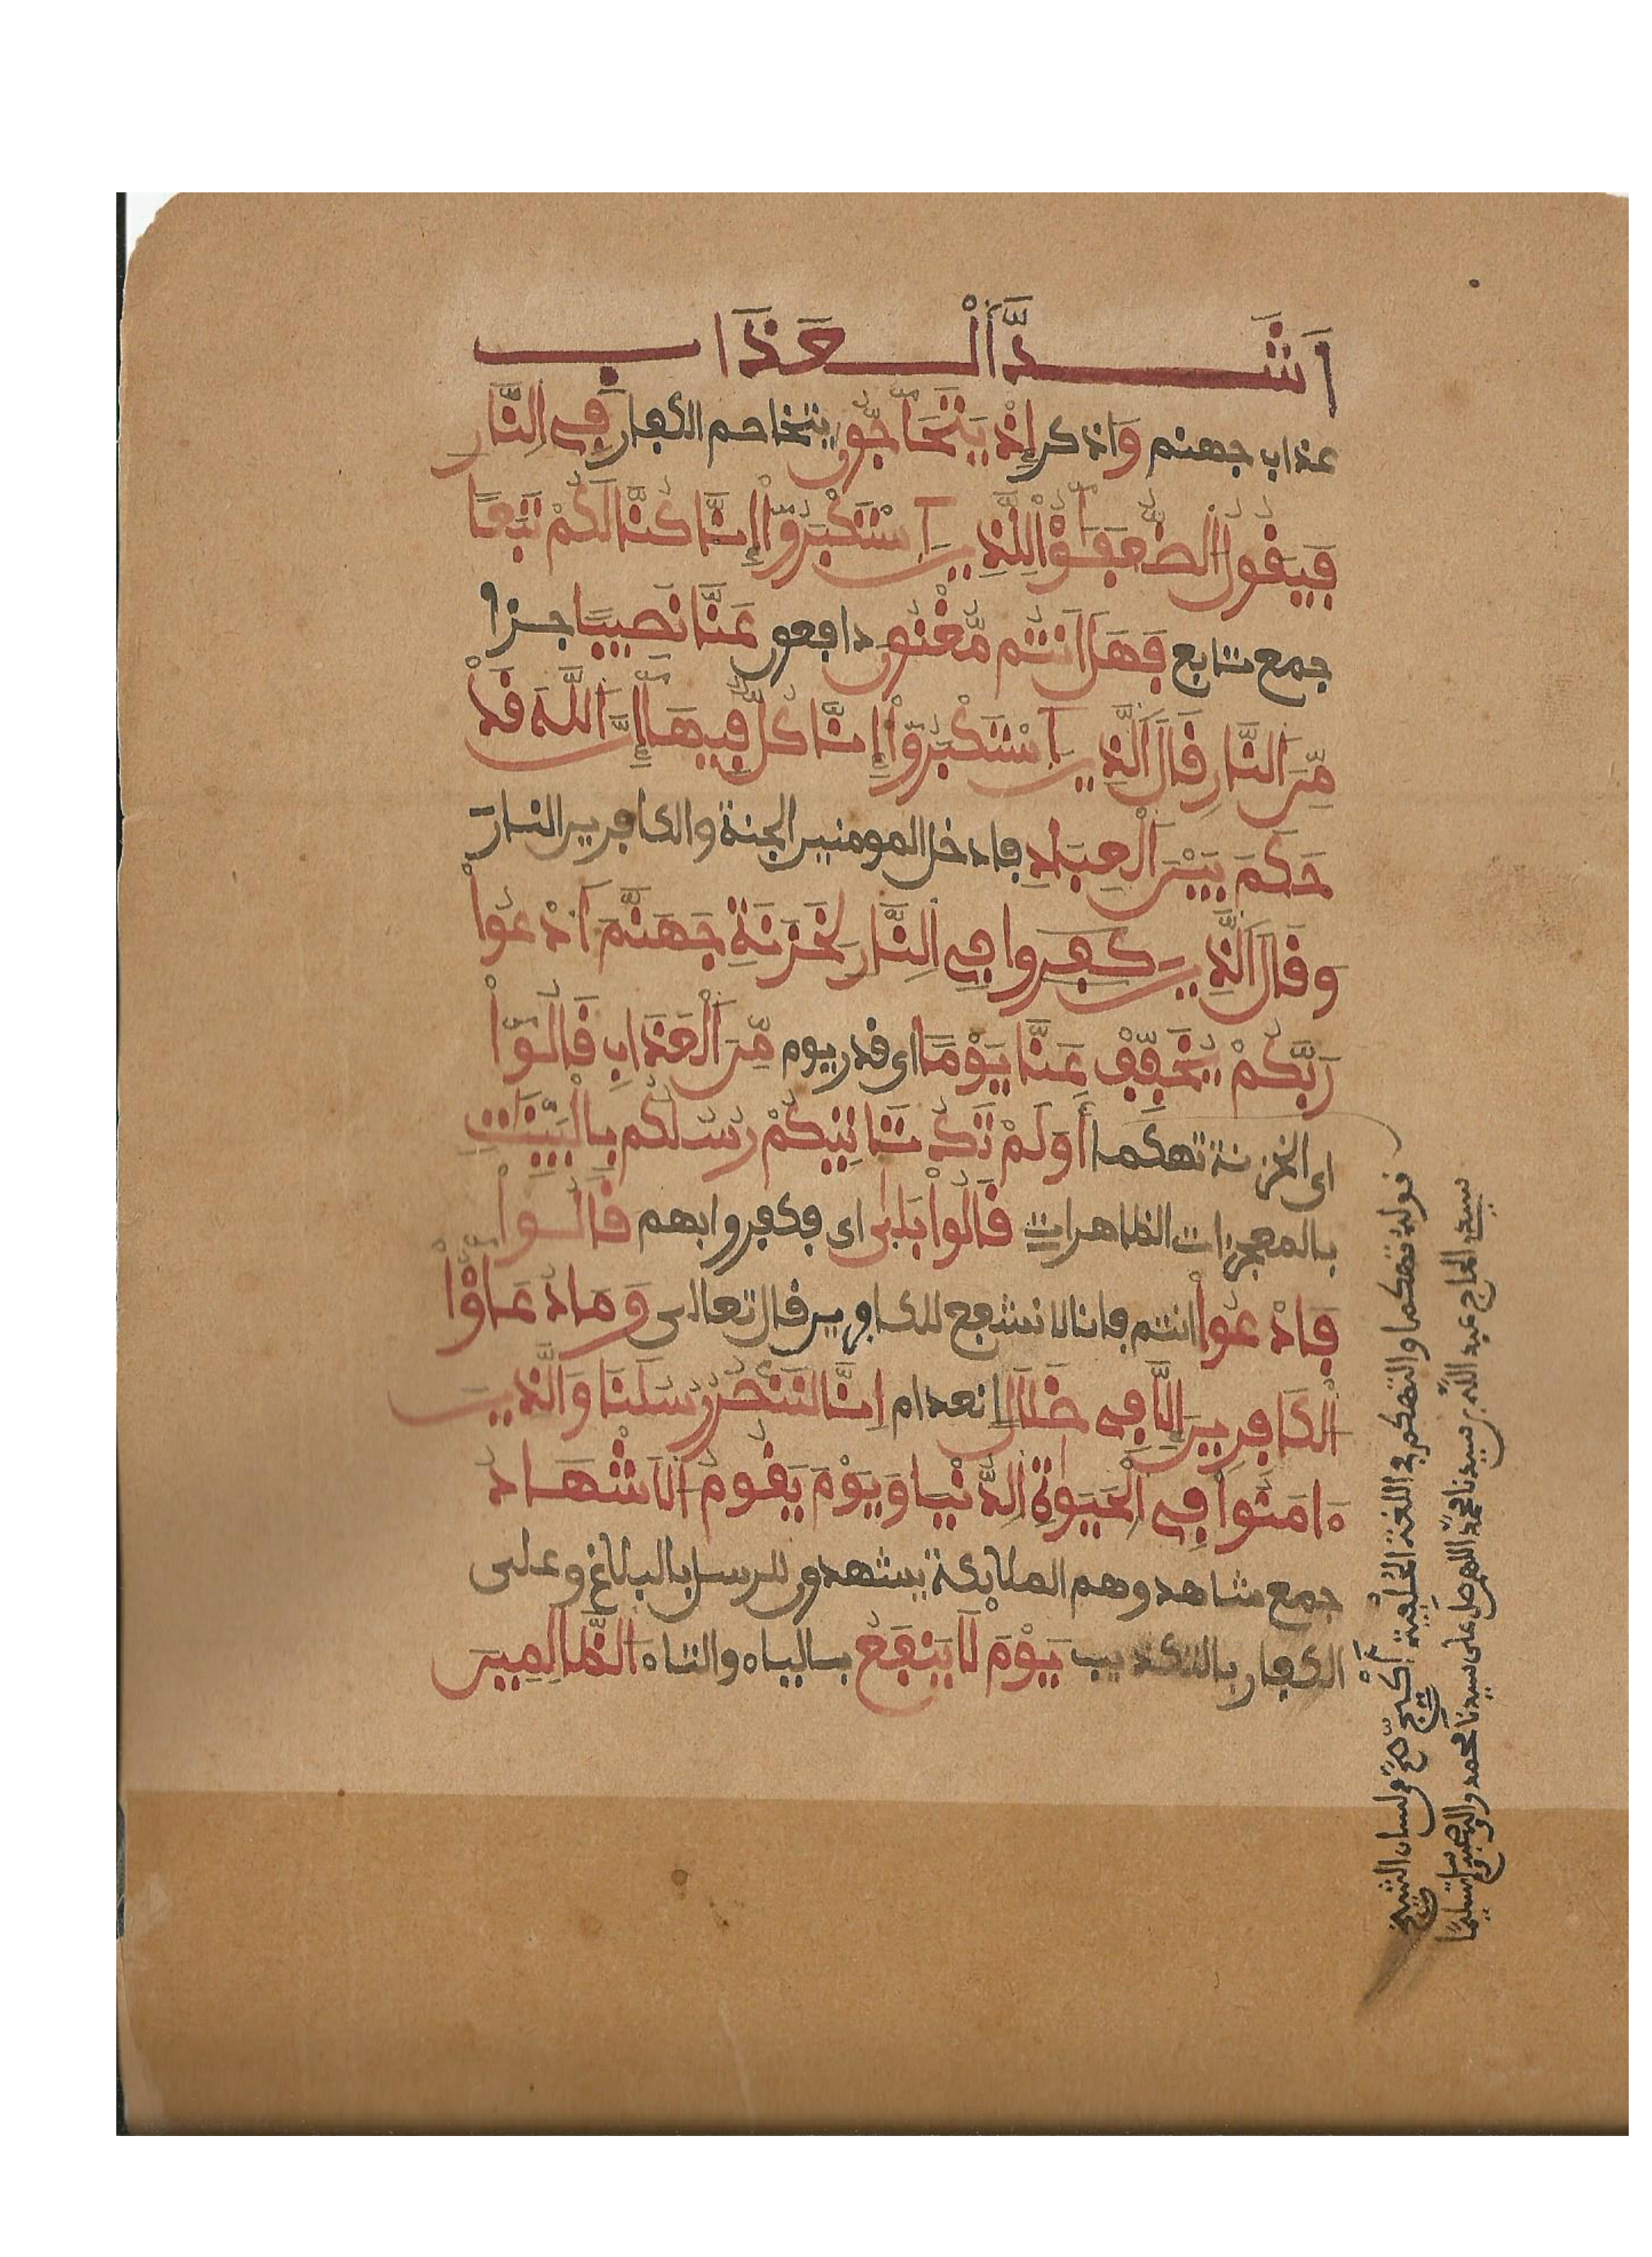 اَشَدَّ اَلْعَذَابِ
عذاب جهنم وَاذكر إِذْ يَتَحَآجُّونَ يتخاصم الكفار فِے اِلنّارِ
فَيَقُولُ اُلضُّعَفَٰٓؤُاْ لِلذِينَ اَسْتَكْبَرُوٓاْ إِنَّا كُنَّا لَكُمْ تَبَعاً
جمع تابع فَهَلَ اَنتُم مُّغْنُونَ دافعون عَنَّا نَصِيباً جزا
مِّنَ اَلنّارِ قَالَ اَلذِينَ اَسْتَكْبَرُوٓاْ إِنَّا كُلٌّ فِيهَآ إِنَّ اَللَّهَ قَدْ
حَكَمَ بَيْنَ اَلْعِبَادِ فادخل المومنين الجنة والكافرين النار
وَقَالَ اَلذِينَ كَفَرُوا فِے اِلنّارِ لِخَزَنَةِ جَهَنَّمَ اَدْعُواْ
رَبَّكُمْ يُخَفِّفْ عَنَّا يَوْماً اى قدر يوم مِّنَ اَلْعَذَابِ قَالُوٓاْ
اى الخزنة تهكما أَوَلَمْ تَكُ تَاتِيكُمْ رُسُلُكُم بِالْبَيِّنَٰتِ
بالمعجزات الظاهرات قَالُواْ بَلَىٰ اى فكفروا بهم قَالُواْ
فَادْعُواْ انتم فانا لا نشفع للكافرين قال تعالى وَمَا دُعَٰٓؤُاْ
اُلكَافِرِينَ إِلَّا فِے ضَلَٰلٍ انعدام اِنَّا لَنَنْصُرُ رُسُلَنَا وَالذِينَ
ءَامَنُواْ فِے اِلْحَيَوٰةِ اِلدُّنْيا وَيَوْمَ يَقُومُ اُلَاشْهَادُ
جمع شاهد وهم الملائكة يشهدون للرسل بالبلاغ وعلى
الكفار بالتكذيب يَوْمَ لَا يَنفَعُ بالياء والتاء اَلظَّالِمِينَ
قوله تهكما والتهكم في اللغة الحلبية من لسان الشيخ
سيد الحاج عبد الله بن سيدنا محمد اللهم صل على سيدنا محمد وءاله وصحبه وسلم تسليما